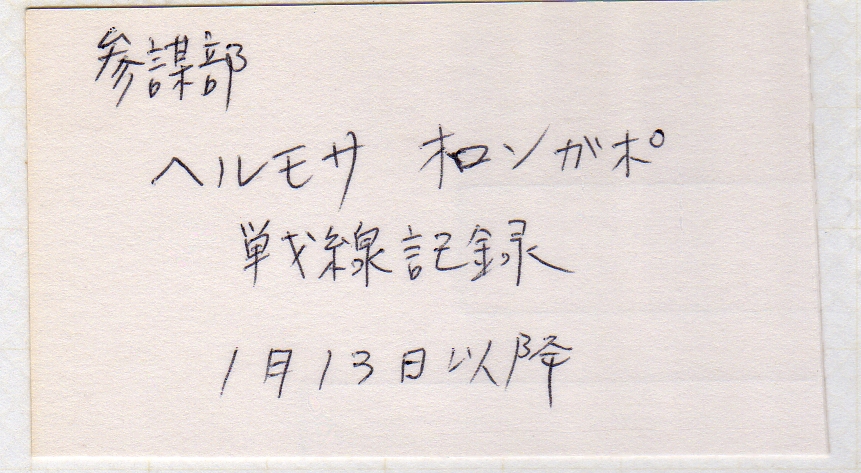 参謀部
ヘルモサ オロンガポ
戦線記録
1月13日以降